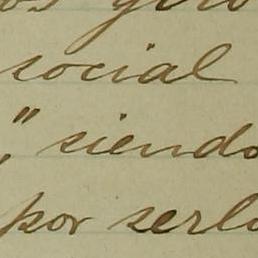 social
," siendo
por serlo